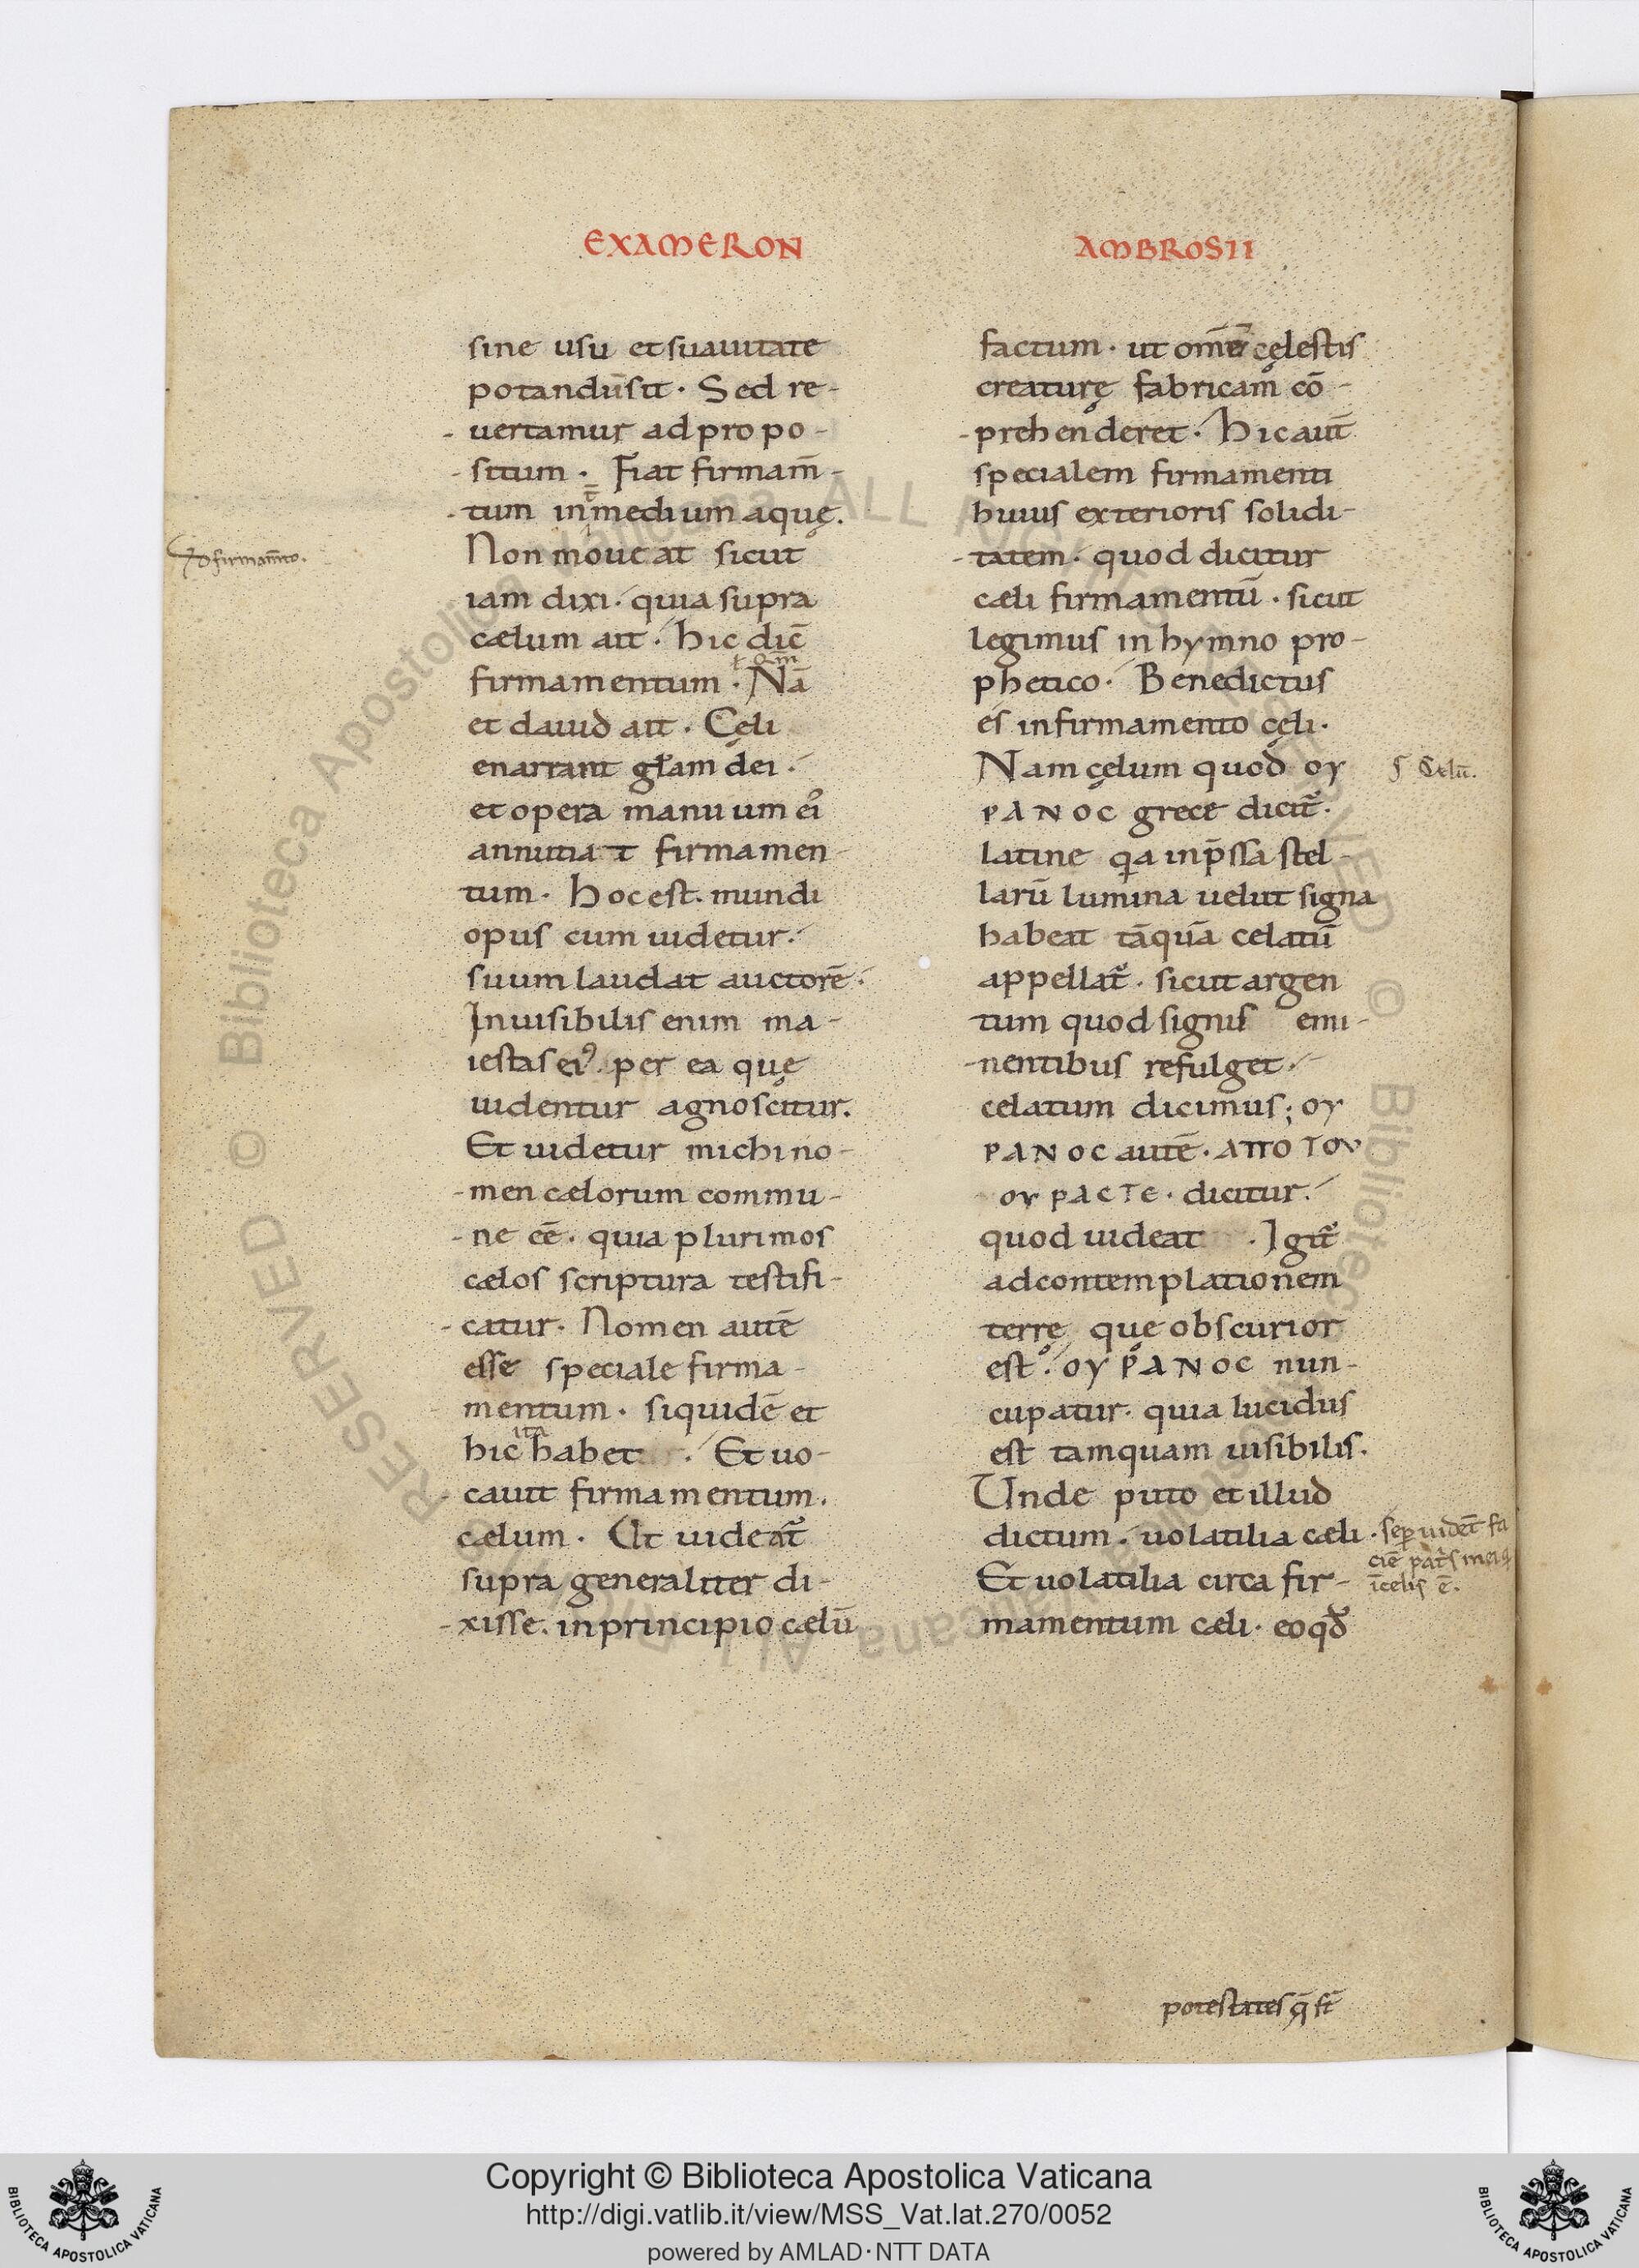 EXAMERON
sine usu et suauitate
potandū sit · Sed re-
-uertamur ad propo-
-situm · Fiat firmam̄-
-tum in medium aquę.
Non moueat sicut
iam dixi · quia supra
cælum ait · hic dic̄
firmamentum · Nā
et dauid ait · Cęli
enarrant gl̄am dei ·
et opera manuum ei᾽
annuntiat firmamen-
tum · Hoc est · mundi
opus cum uidetur ·
suum laudat auctorē ·
Inuisibilis enim ma-
iestas ei᾽ · per ea quę
uidentur agnoscitur.
Et uidetur michi no-
-men cælorum commu-
-ne ēē · quia plurimos
cælos scriptura testifi-
-catur · Nomen autē
esse speciale firma-
mentum · siquidē et
hic ita habet · Et uo-
-cauit firmamentum.
cælum · Ut uideat᷑
supra generaliter di-
-xisse · in principio cælū
de firmam̄to.
AMBROSII
factum · ut om̄ē cęlestis
creaturę fabricam̄ cō-
-prehenderet · Hic aut̄
specialem firmamenti
huius exterioris solidi-
-tatem · quod dicitur
cæli firmamentū · sicut
legimus in hymno pro-
phetico · Benedictus
es in firmamento cęli ·
Nam cęlum quod ΟΥ
ΡΑΝΟC grece dicit᷑ ·
latine q̇a inp̄ssa stel-
larū lumina uelut signa
habeat tāquā celatū
appellat᷑ · sicut argen
tum quod signis emi-
-nentibus refulget ·
celatum dicimus; ΟΥ
ΡΑΝΟC autē · ΑΠΟ ΤΟΥ
ΟΥΡΑCΤΕ · dicitur ·
quod uideat · Igit᷑
ad contemplationem
terrę que obscurior
est · ΟΥΡΑΝΟC nun-
cupatur · quia lucidus
est tamquam uisibilis.
Unde puto et illud
dictum · uolatilia cæli ·
Et uolatilia circa fir-
mamentum cæli · eo qđ
Celū.
sep̱ uidēt fa
ciē pat̄s mei q̇
ī celis ē.
potestates q̄ st̄
Copyright © Biblioteca Apostolica Vaticana
http://digi.vatlib.it/view/MSS_Vat.lat.270/0052
powered by AMLAD·NTT DATA
BIBLIOTECA APOSTOLICA VATICANA
BIBLIOTECA APOSTOLICA VATICANA